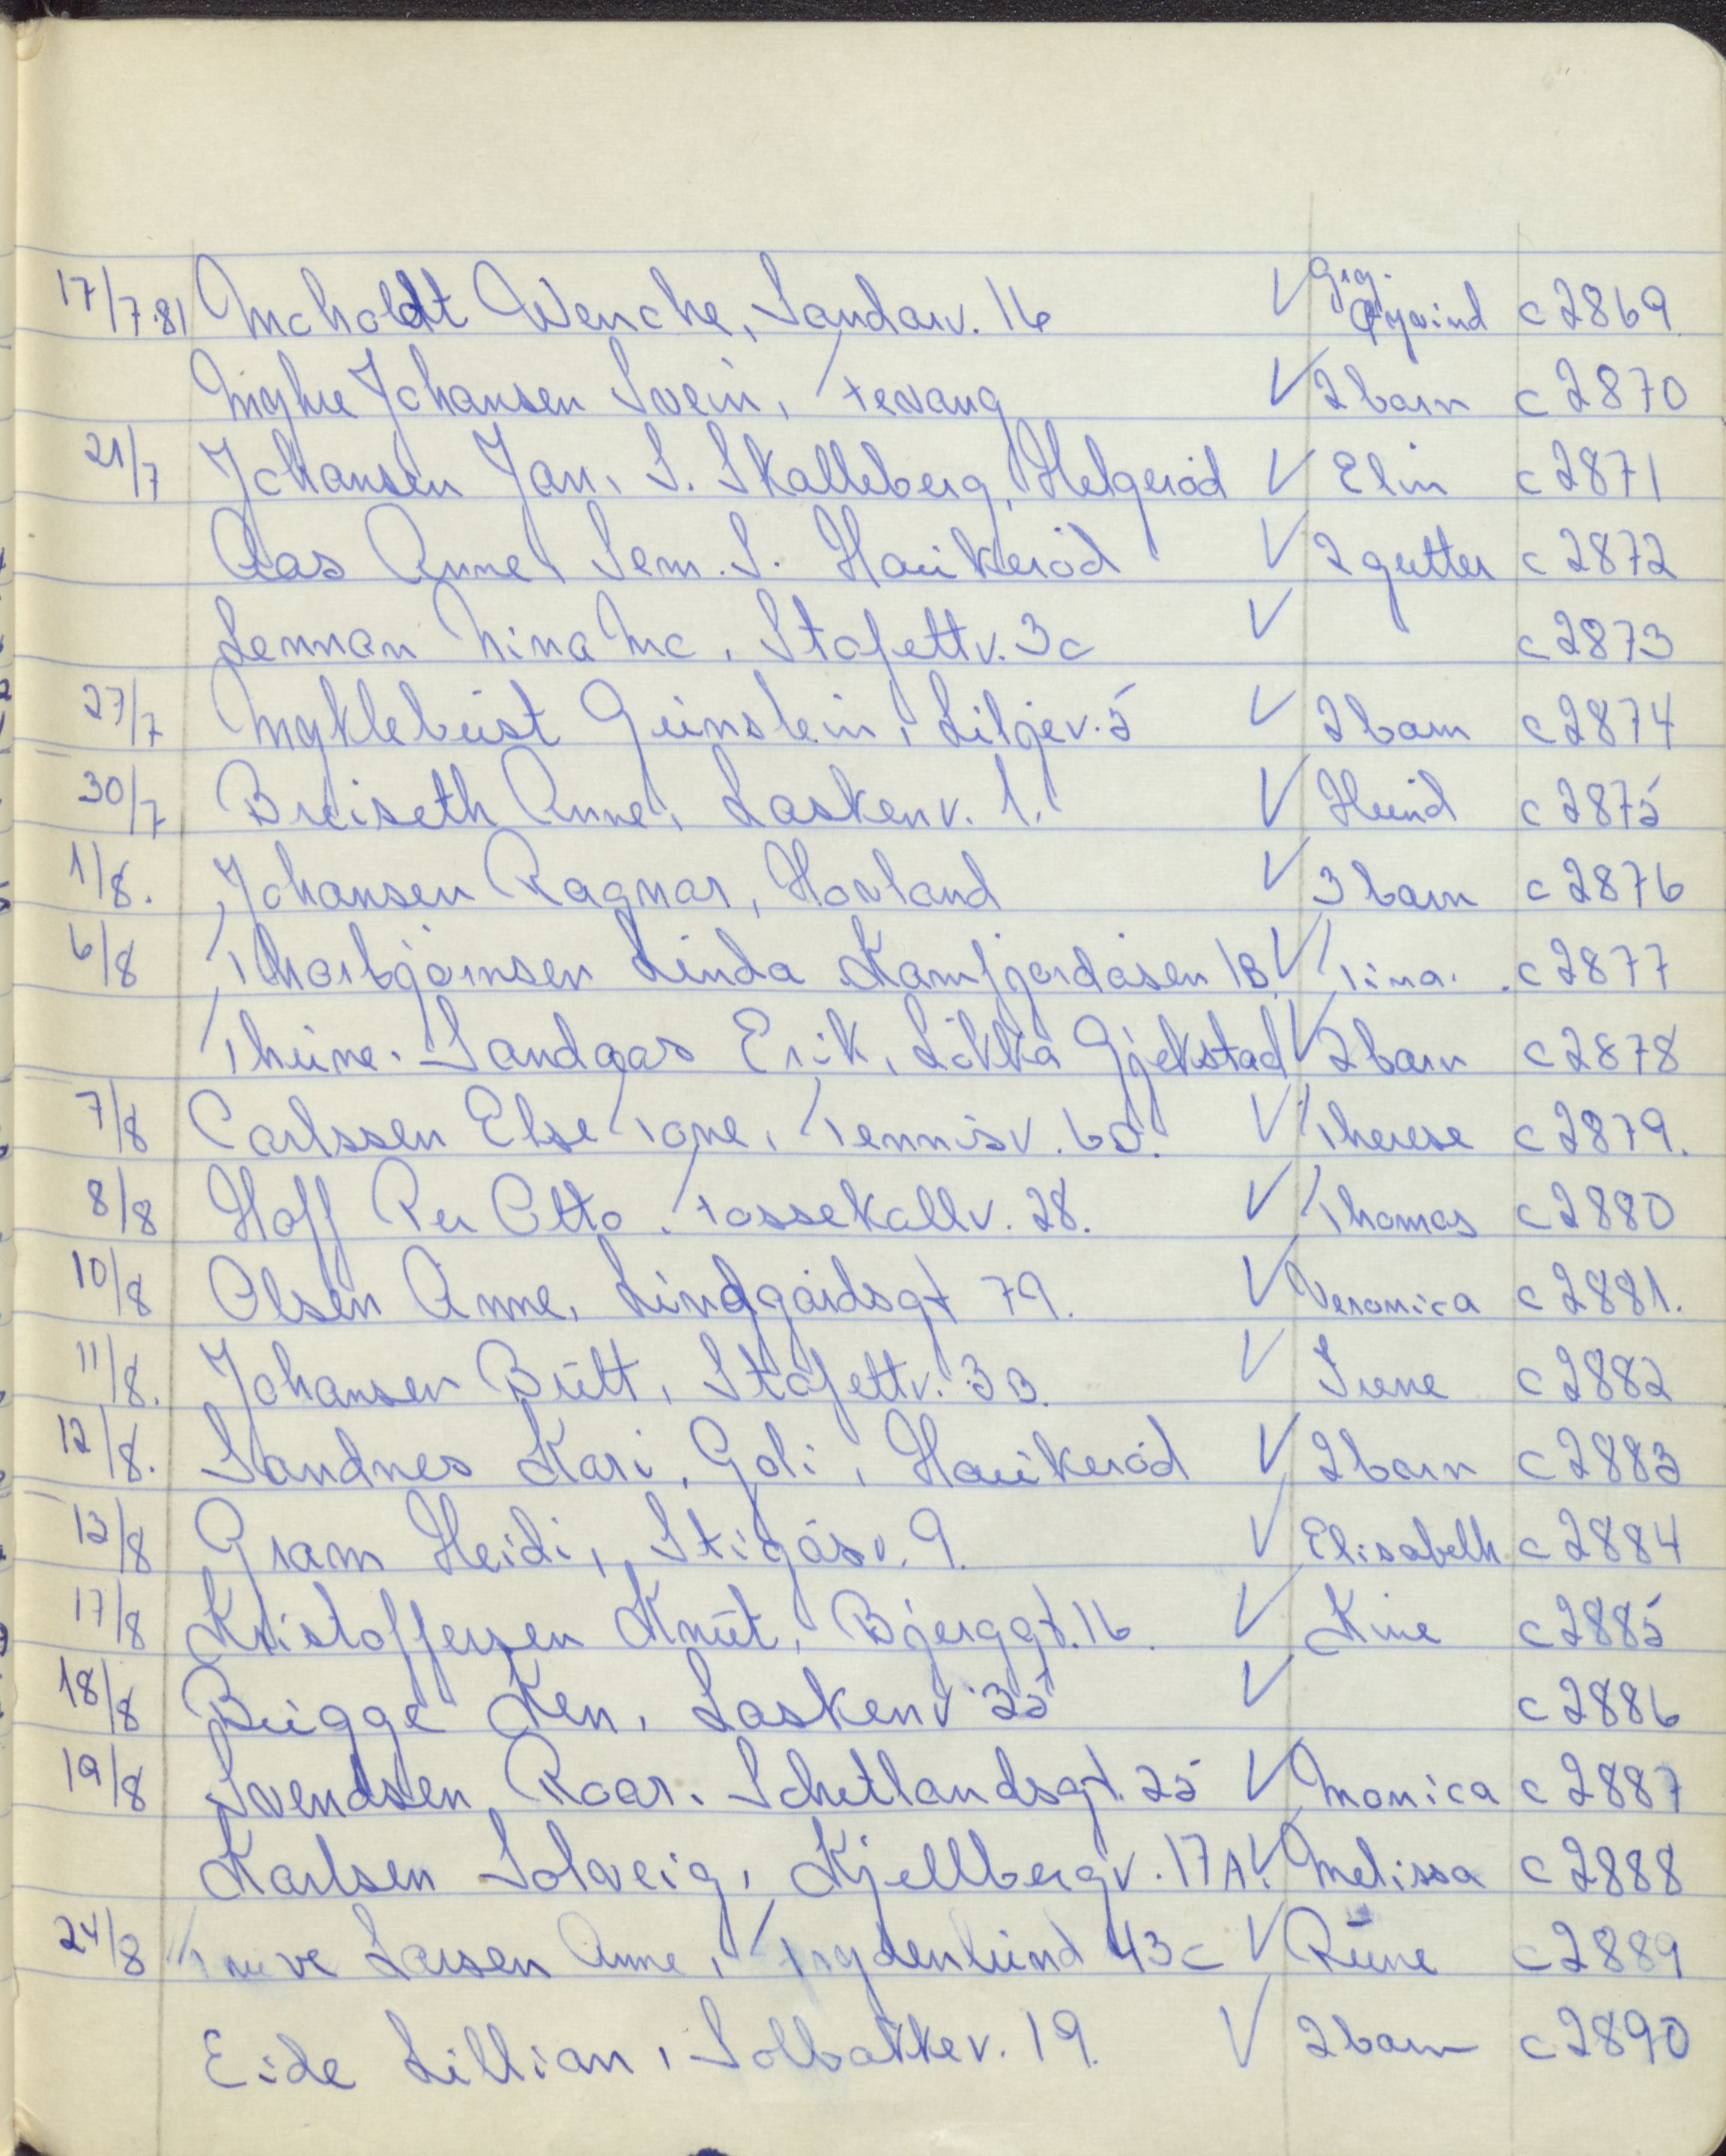 17/7.81 Moholdt Wenche, Sandarv. 16 ✓ Gry. Øyvind c 2869
Myhre Johansen Svein, Tevang ✓ 2 barn c 2870
21/7 Johansen Jan, S. Skalleberg, Helgeröd ✓ Elin c 2871
Aas Anne, Sem. S. Haukeröd ✓ 2 gutter c 2872
Lennan Nina Mc, Stafettv. 3c ✓ c 2873
27/7 Myklebust Geirstein, Liljev. 5 ✓ 2 barn c 2874
30/7 Breiseth Anne, Laskenv. 1. ✓ c 2875
1/8. Johansen Ragnar, Hovland ✓ 3 barn c 2876
6/8 Thorbjörnsen Linda Kamfjordåsen 1B. ✓ Tina. c 2877
Thune. Sandaas Erik, Lökka Gjekstad ✓ 2 barn c 2878
7/8 Carlssen Else Tone, Tennisv. 6D. ✓ Therese c 2879.
8/8 Hoff Per Otto. Fossekallv. 28. ✓ Thomas c 2880
10/8 Olsen Anne, Lindgårdsgt 79. ✓ Veronica c 2881.
11/8. Johansen Britt, Stafettv. 3B. ✓ Irene c 2882
12/8. Sandnes Kari, Goli, Haukeröd ✓ 2 barn c 2883
13/8 Gram Heidi, Stigåsv. 9. ✓ Elisabeth c 2884
17/8 Kristoffersen Knut, Bjerggt. 16. ✓ Kine c 2885
18/8 Bugge Ken, Laskenv 35 ✓ c 2886
19/8 Svendsen Roar. Schetlandsgt. 25 ✓ Monica c 2887
Karlsen Solveig, Kjellbergv. 17A. ✓ Melissa c 2888
24/8 Larsen Anne, Frydenlund 43c ✓ Rune c 2889
Eide Lillian, Solbakkev. 19. ✓ 2 barn c 2890